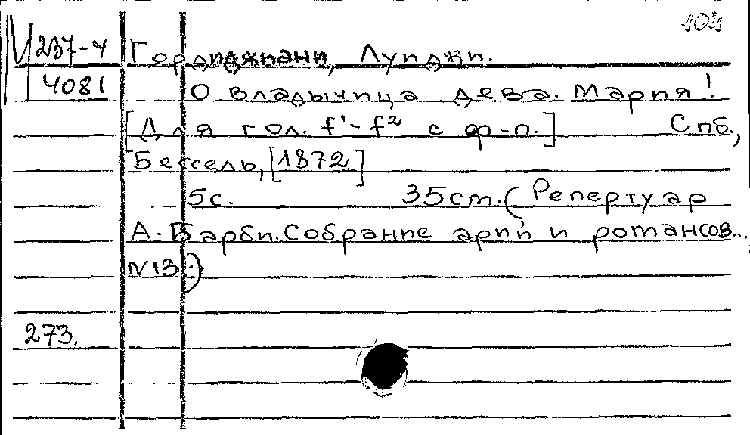 104
М 237-4 Гордиджиани, Луиджи.
4081 О владычица дева. Мария!
[Для гол. f¹-f² с ф-п.] Спб,
Бессель, [1872]
5с. 35см. (Репертуар
А. Барби. Собрание арий и романсов...
№13.)
273.